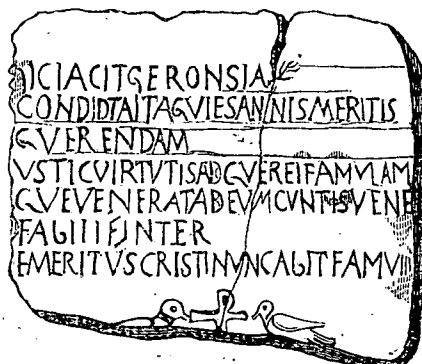 ICIACITGERONSIA
CONDIDTAITAGVIESANNISMERITIS
GVERENDAM
VSTICVIRTVTISADGVEREIFAMVLAM
GVEVENERATADEVMCVNTISVENE
FAGIIIFINTER
EMERITVSCRISTINVNCAGITFAMVII